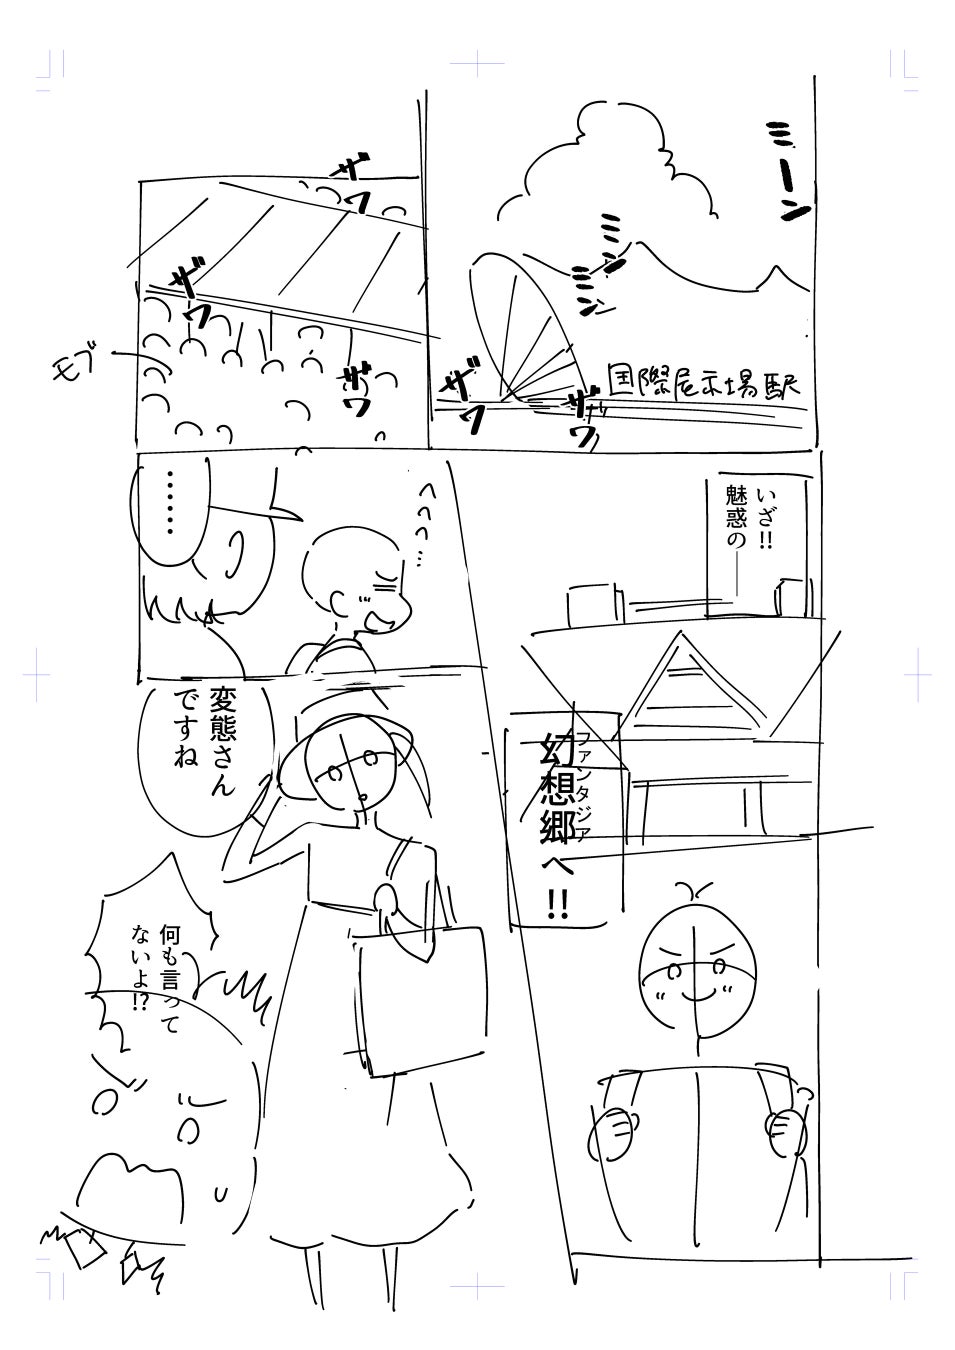 ミーン
ミミン
ミミン
国際展示場駅
ザワ
ザワ
ザワ
ザワ
ザワ
モブ
いざ!!
魅惑の―
幻想郷へ!!
ファンタジア
へへへ…
……
変態さん
ですね
何も言って
ないよ!?